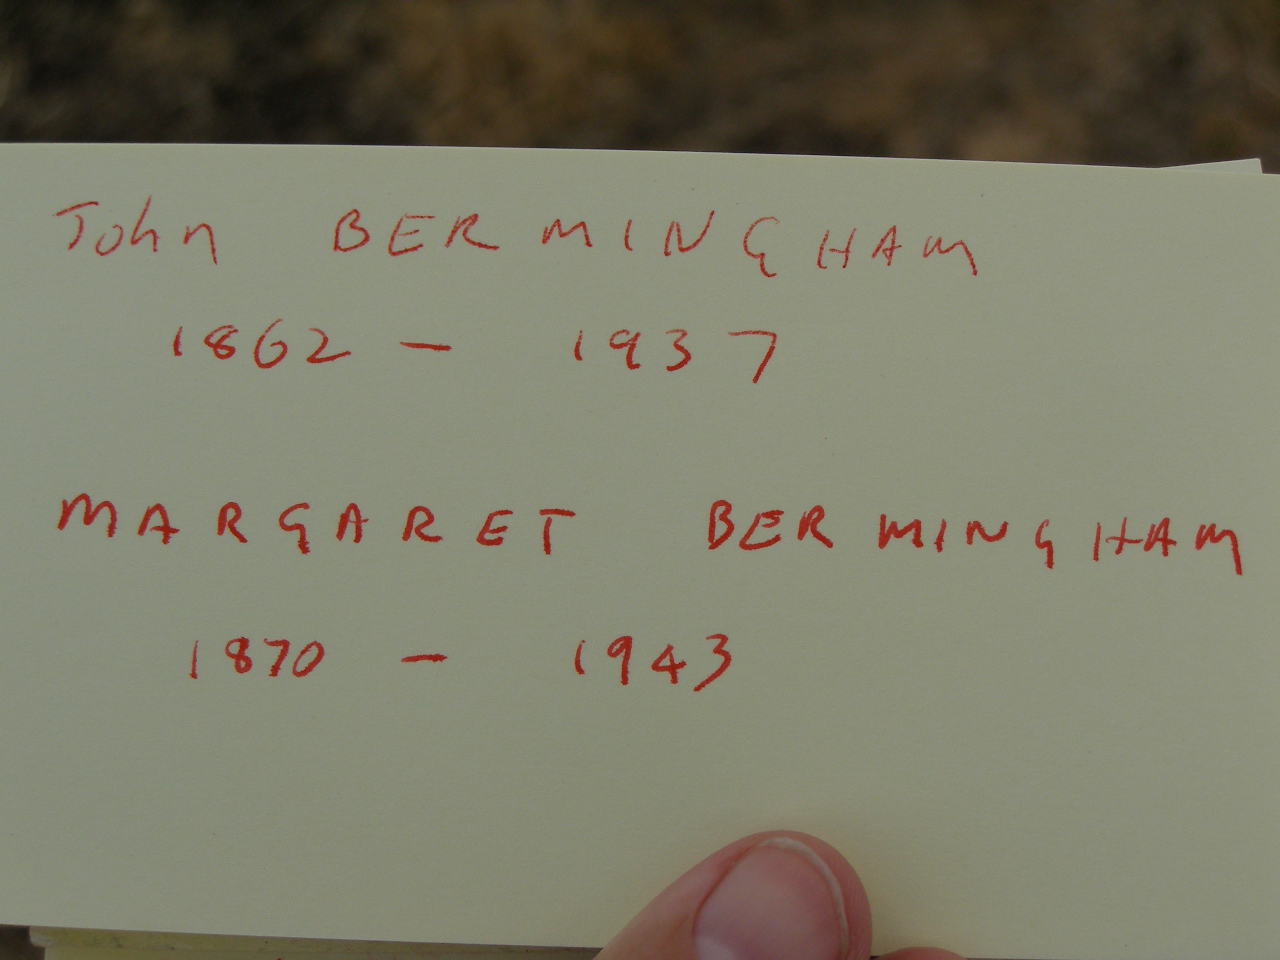 John BERMINGHAM
1862 - 1937
MARGARET BERMINGHAM
1870 - 1943